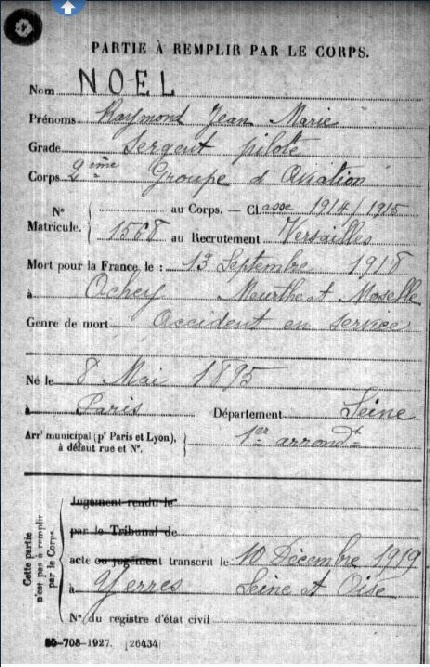 PARTIE À REMPLIR PAR LE CORPS.
Nom NOEL
Prénoms Raymond Jean Marie
Grade Sergent pilote
Corps 2ième Groupe d'Aviation
N° Matricule. { au Corps. — Classe 1914/1915
1508 au Recrutement Versailles
Mort pour la France, le : 13 Septembre 1918
à Ochey Meurthe et Moselle
Genre de mort Accident en service
Né le 8 Mai 1895
à Paris Département Seine
Arrt municipal (pr Paris et Lyon), à défaut rue et N°. { 1er arrondt
Cette partie n'est pas à remplir par le Corps.
Jugement rendu le
par le Tribunal de
acte ou jugement transcrit le 10 Décembre 1919
à Yerres Seine et Oise
N° du registre d'état civil
-708-1927. [26434]